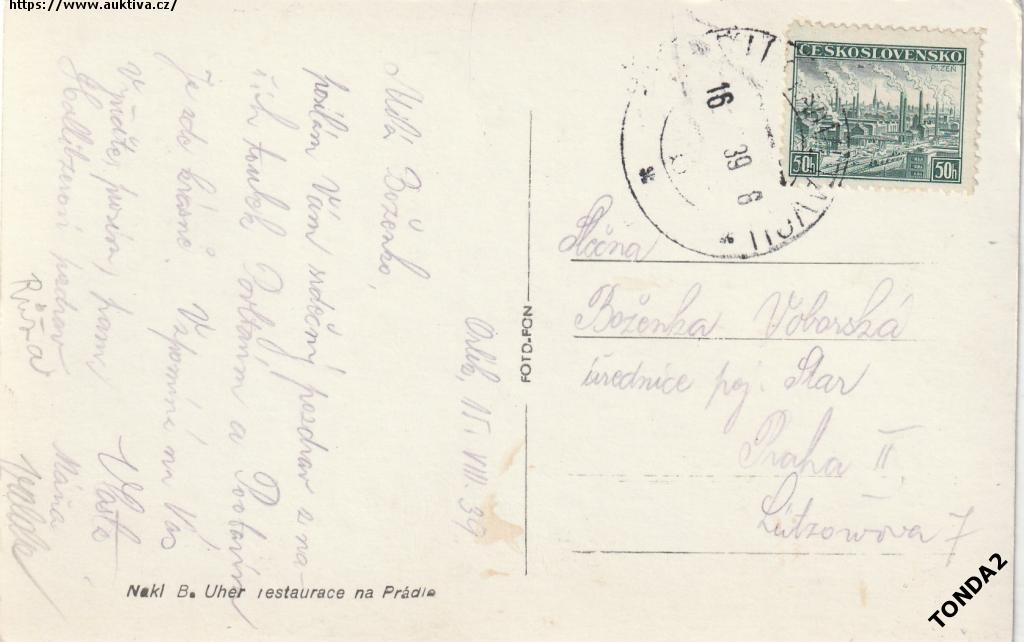 https://www.auktiva.cz/
ČESKOSLOVENSKO
PLZEŃ
50h 50h
16 39 8
Orlík, 15. VIII. 39.
Milá Boženko,
posílám Vám srdečný pozdrav z na-
šich toulek Povltavím a
je zde krásně. Vzpomíná na Vás
Vlasta
pozdrav Máňa
Růža
Slečna
Boženka Voborská
úřednice poj. Star
Praha II
Lützowova 7
FOTO-FON
Nakl B. Uher restaurace na Prádle
TONDA2